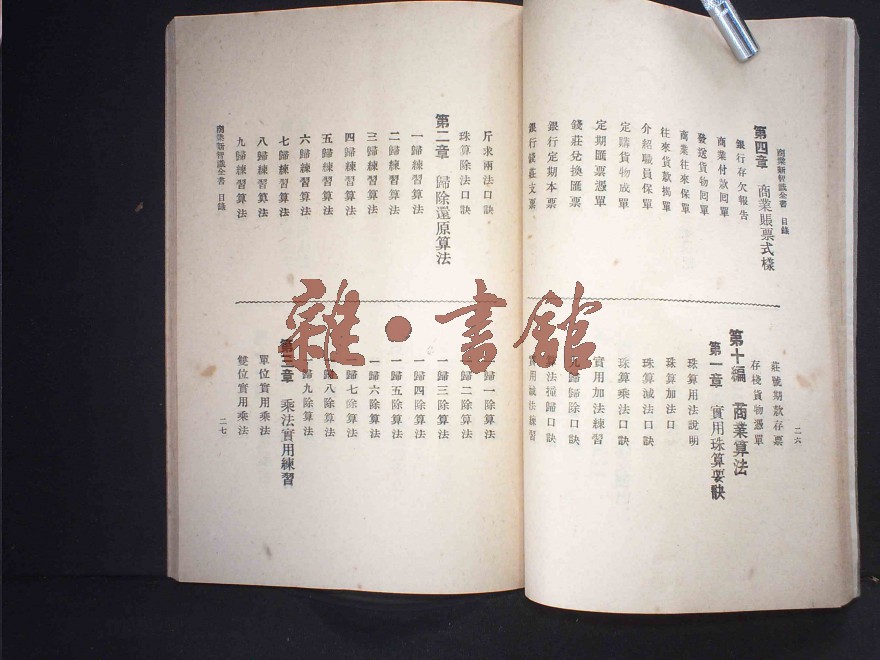 商業新智識全書 目錄
第四章 商業賬票式樣
銀行存欠報告
商業付款囘單
發送貨物囘單
商業往來保單
往來貨款揭單
介紹職員保單
定購貨物成單
定期匯票憑單
錢莊兌換匯票
銀行定期本票
銀行錢莊支票
莊號期款存票
存棧貨物憑單
第十編 商業算法
第一章 實用珠算要訣
珠算用法說明
珠算加法口
珠算減法口訣
珠算乘法口訣
實用加法練習
九歸歸除口訣
算法撞歸口訣
實用減法練習
二六
斤求兩法口訣
珠算除法口訣
第二章 歸除還原算法
一歸練習算法
二歸練習算法
三歸練習算法
四歸練習算法
五歸練習算法
六歸練習算法
七歸練習算法
八歸練習算法
九歸練習算法
商業新智識全書 目錄
一歸一除算法
一歸二除算法
一歸三除算法
一歸四除算法
一歸五除算法
一歸六除算法
一歸七除算法
一歸八除算法
一歸九除算法
第三章 乘法實用練習
單位實用乘法
雙位實用乘法
二七
雜·書館